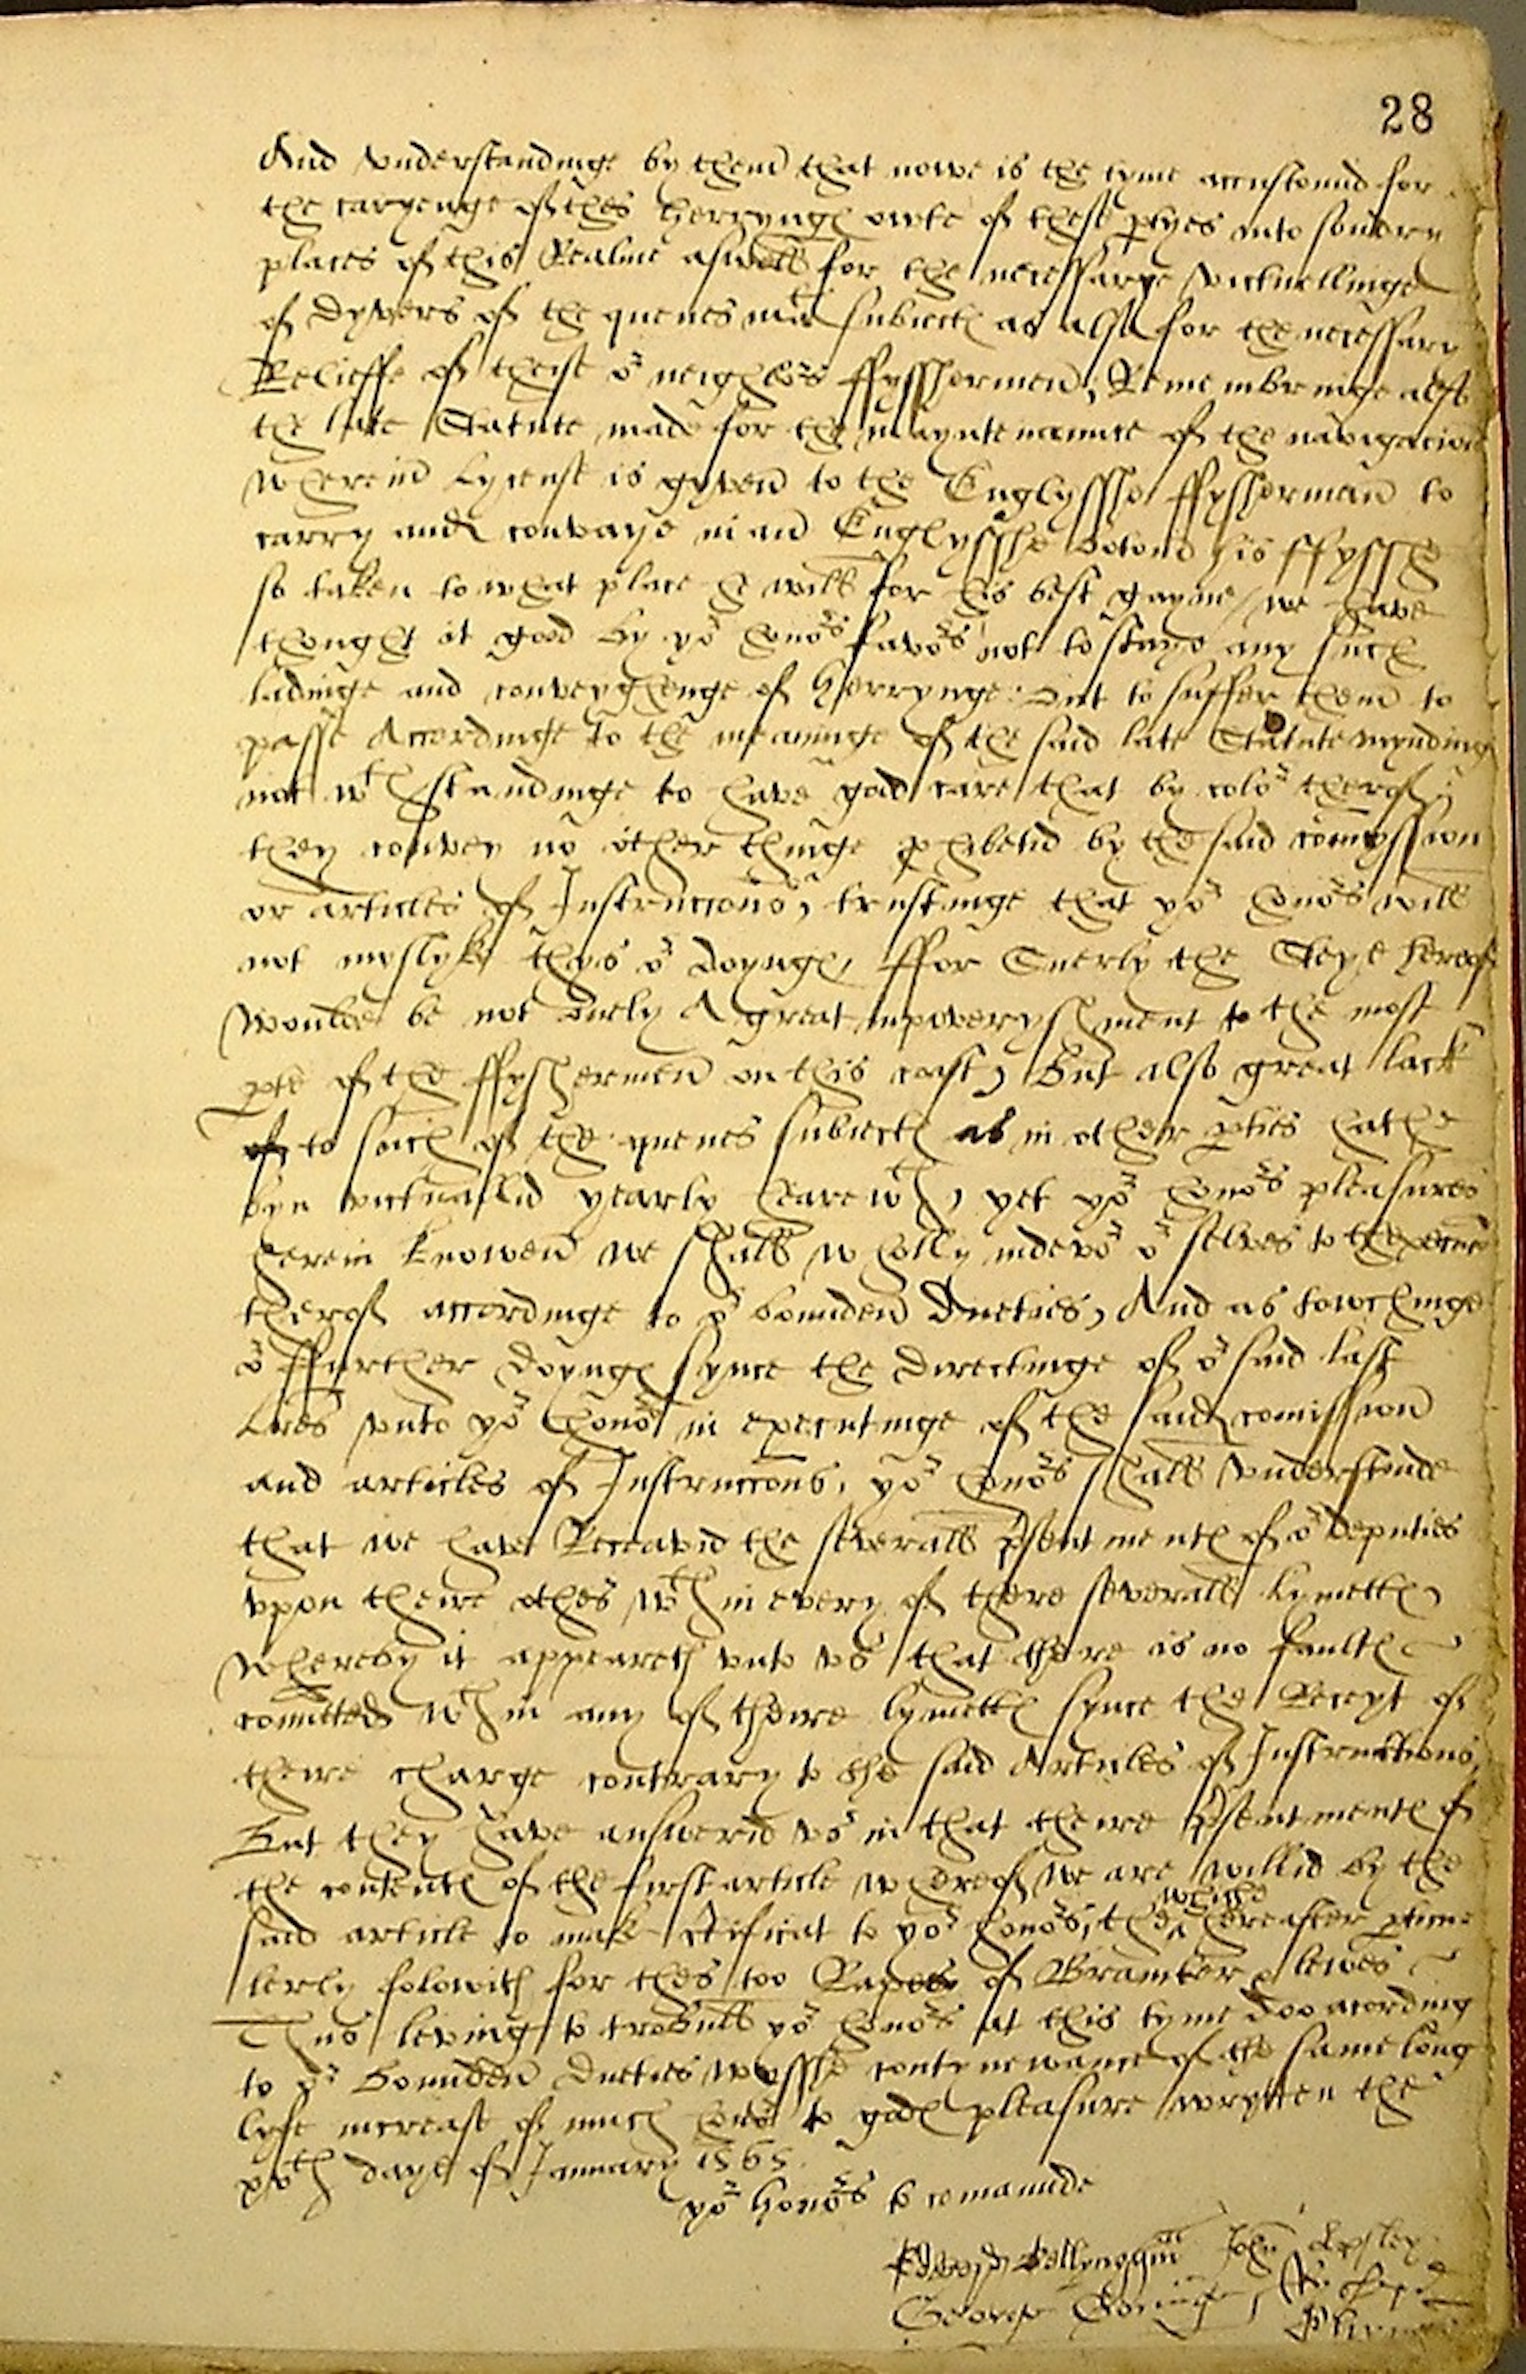 28
And vnderstandinge by them that nowe is the tyme accustomid for
the caryenge of thes herryng owte of these ptyes into sondry
places of this Realme aswell for the necessarye victuellinge
of dyvers of the quenes ma subiect as also for the necessary
Relieffe of theise or neighbors ffysshermen, Remembringe also
the late Statute made for the mayntenaunce of the navigacion
wherein Lycense is gyven to the Englysshe ffyssherman to
carry and convaye in an Englysshe botome his ffysshe
so taken to what place he will for his best gayne / we have
thought it good by yor honors favors not to staye any such
ladinge and conveyghenge of herrynge: but to suffer them to
passe Accordinge to the meaninge of the said late Statute myndinge
not wth standinge to have good care that by color therof
they convey no other thinge phibetid by the said comyssion
or articles of Instruccions, trustinge that yor honors will
not myslyke thys or doyng, ffor Suerly the Steye herof
woulde be not onely A great inpoveryshment to the most
pte of the ffyshermen on this coast, But also great lack
of to such of the quenes subiect as in other pties hathe
byn victualid yearly hearewth, yet yor honors pleasures
herein knowen we shall wholly indevor or selves to the
therof accordinge to or bounden Dueties, And as towchinge
or ffurther doyng synce the directinge of or said last
Lres vnto yor honors in executinge of the said comission
and articles of Instruccons, yor honors shall vnderstonde
that we have Receavid the severall psentment of or deputies
vpon theire othes wthin every of there severall Lymett
whereby it appeareth vnto vs that there is no fault
comitted wthin any of theire lymett synce the Recept of
theire charge contrary to the said Articles of Instructions,
But they have answerid vs in that theire psentment of
the content of the first article wherof we are willid by the
said article to make Ctificat to yor honors, the whiche hereafter pticu-
lerly folowith for thes too Rapes of Bramber & lewes
Thus leving to trobull yor honors at this tyme doo acording
to or bounden dueties wysshe contynewance of the same long
lyfe increase of much honor to god pleasure wrytten the
xvth daye of January 1565.
yor honors to comaunde
John Apsley
George Goringe